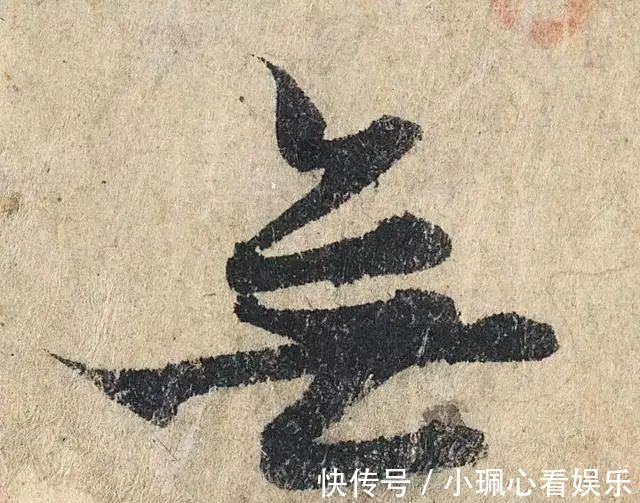 無
快传号 / 小珮心看娱乐